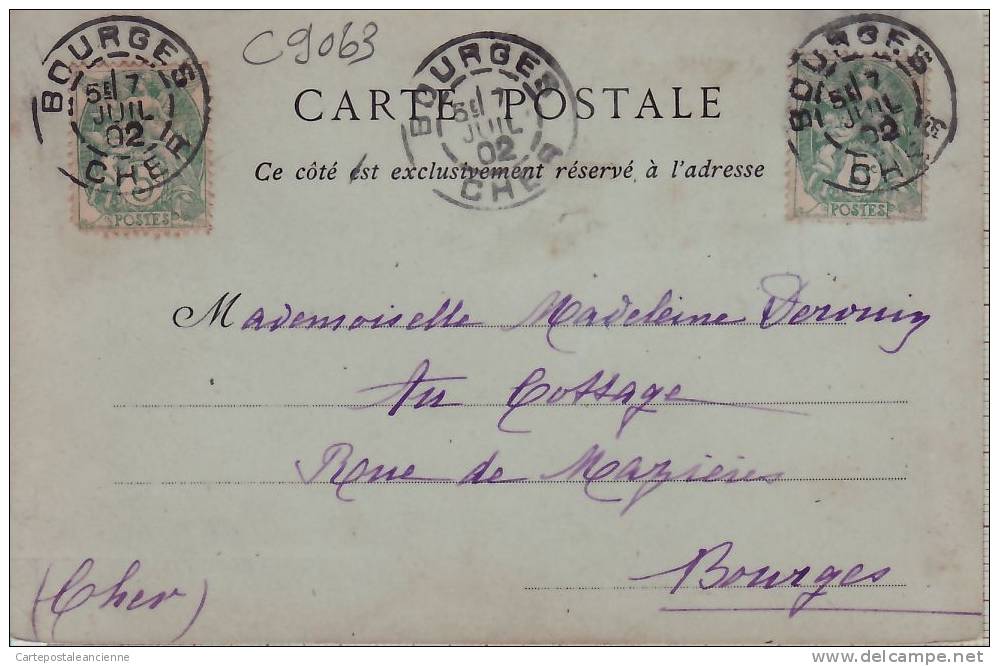 C9063
BOURGES
5E 17
JUIL
02
CHER
POSTES
BOURGES
5E 17
JUIL
02
CHER
BOURGES
5E 17
JUIL
02
CHER
5c
POSTES
CARTE POSTALE
Ce côté est exclusivement réservé à l'adresse
Mademoiselle Madeleine Derouin
Au Cottage
Rue de Mazières
Bourges
(Cher)
Cartepostaleancienne
delcampe.net